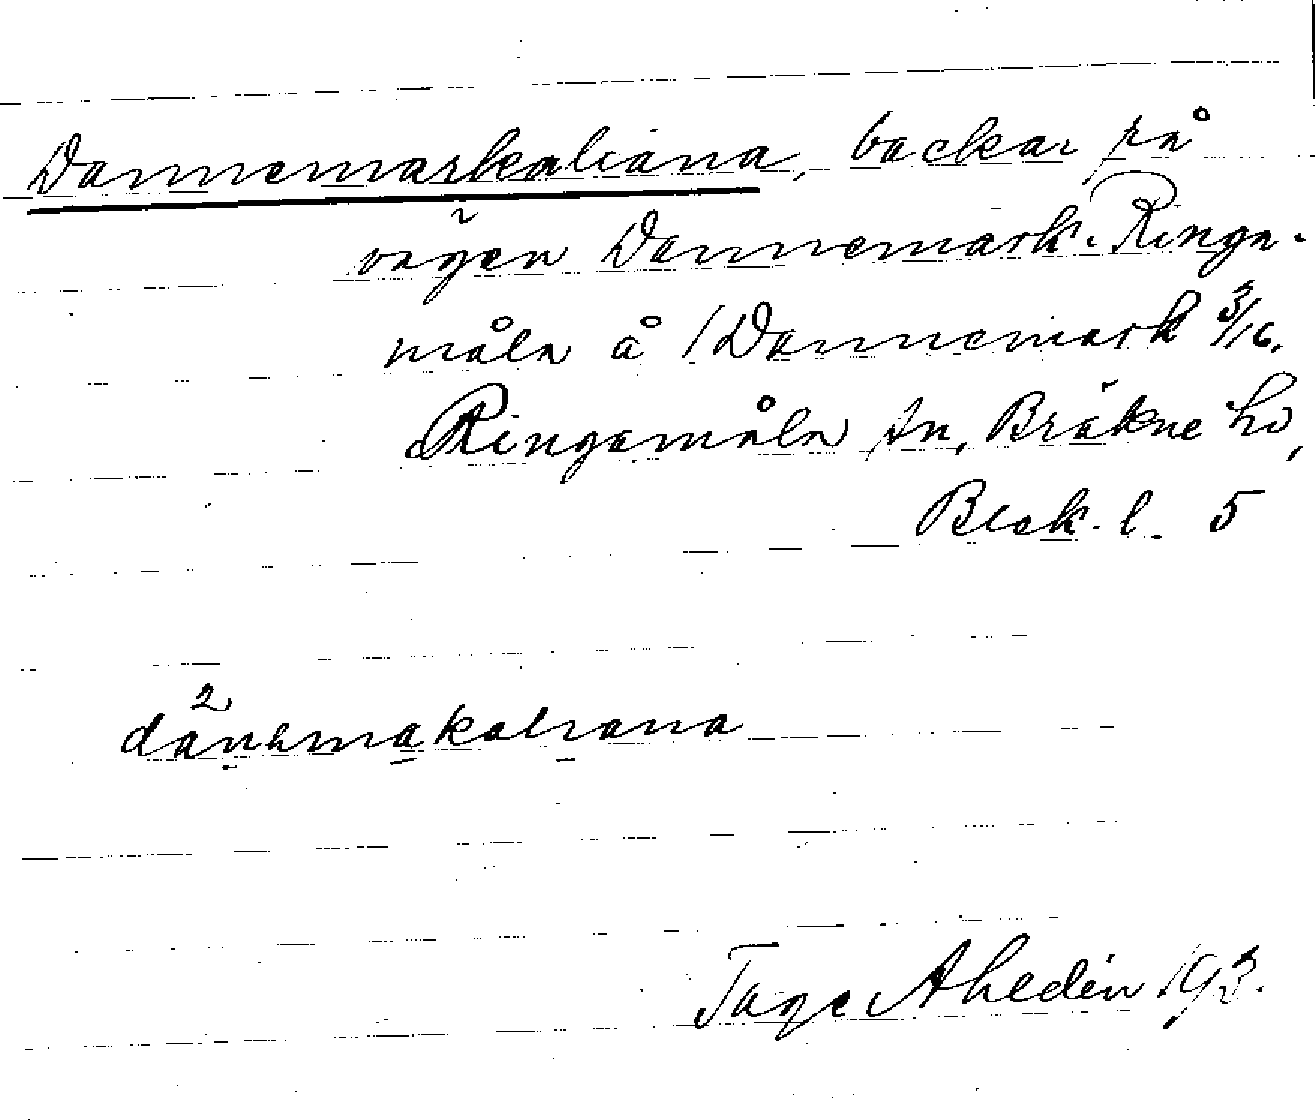 Dannemarkaliana, backar på
vägen Dannemark-Ringa-
måla å /Dannemark 3/16.
Ringamåla sn, Bräkne hd,
Blek. l. 5
Tage Ahldén 193.